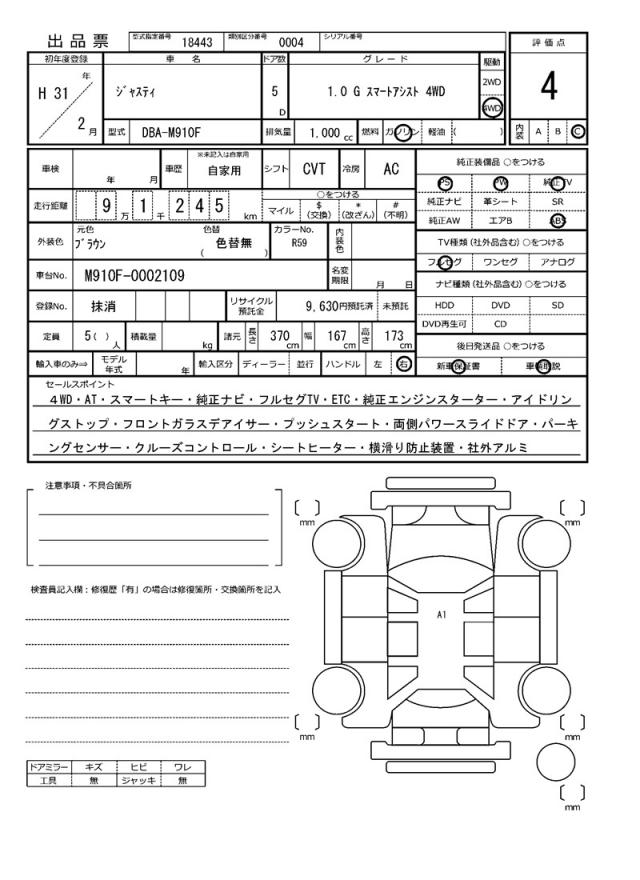 出品票
型式指定番号 18443 類別区分番号 0004 シリアル番号
評価点
4
内装 A B C
初年度登録 車名 ドア数 グレード 駆動
H 31 年 2 月
ジャスティ
5 D
1.0 G スマートアシスト 4WD
2WD
4WD
型式 DBA-M910F 排気量 1.000 cc 燃料 ガソリン 軽油 ( )
車検 年 月 車歴 ※未記入は自家用 自家用 シフト CVT 冷房 AC
走行距離 9 万 1 千 2 4 5 km
○をつける
マイル $(交換) *(改ざん) #(不明)
外装色 元色 ブラウン 色替 ( 色替無 ) カラーNo. R59 内装色
車台No. M910F-0002109 名変期限 月 日
登録No. 抹消 リサイクル預託金 9,630円預託済 未預託
定員 5( ) 人 積載量 kg 諸元 長さ 370 cm 幅 167 cm 高さ 173 cm
輸入車のみ⇒ モデル年式 年 輸入区分 ディーラー 並行 ハンドル 左 右
純正装備品 ○をつける
PS PW 純正TV
純正ナビ 革シート SR
純正AW エアB ABS
TV種類 (社外品含む) ○をつける
フルセグ ワンセグ アナログ
ナビ種類 (社外品含む) ○をつける
HDD DVD SD
DVD再生可 CD
後日発送品 ○をつける
新車保証書 車輌取説
セールスポイント
4WD・AT・スマートキー・純正ナビ・フルセグTV・ETC・純正エンジンスターター・アイドリン
グストップ・フロントガラスデアイサー・プッシュスタート・両側パワースライドドア・パーキ
ングセンサー・クルーズコントロール・シートヒーター・横滑り防止装置・社外アルミ
注意事項・不具合箇所
検査員記入欄：修復歴「有」の場合は修復箇所・交換箇所を記入
ドアミラー キズ ヒビ ワレ
工具 無 ジャッキ 無
mm
mm
A1
mm
mm
mm